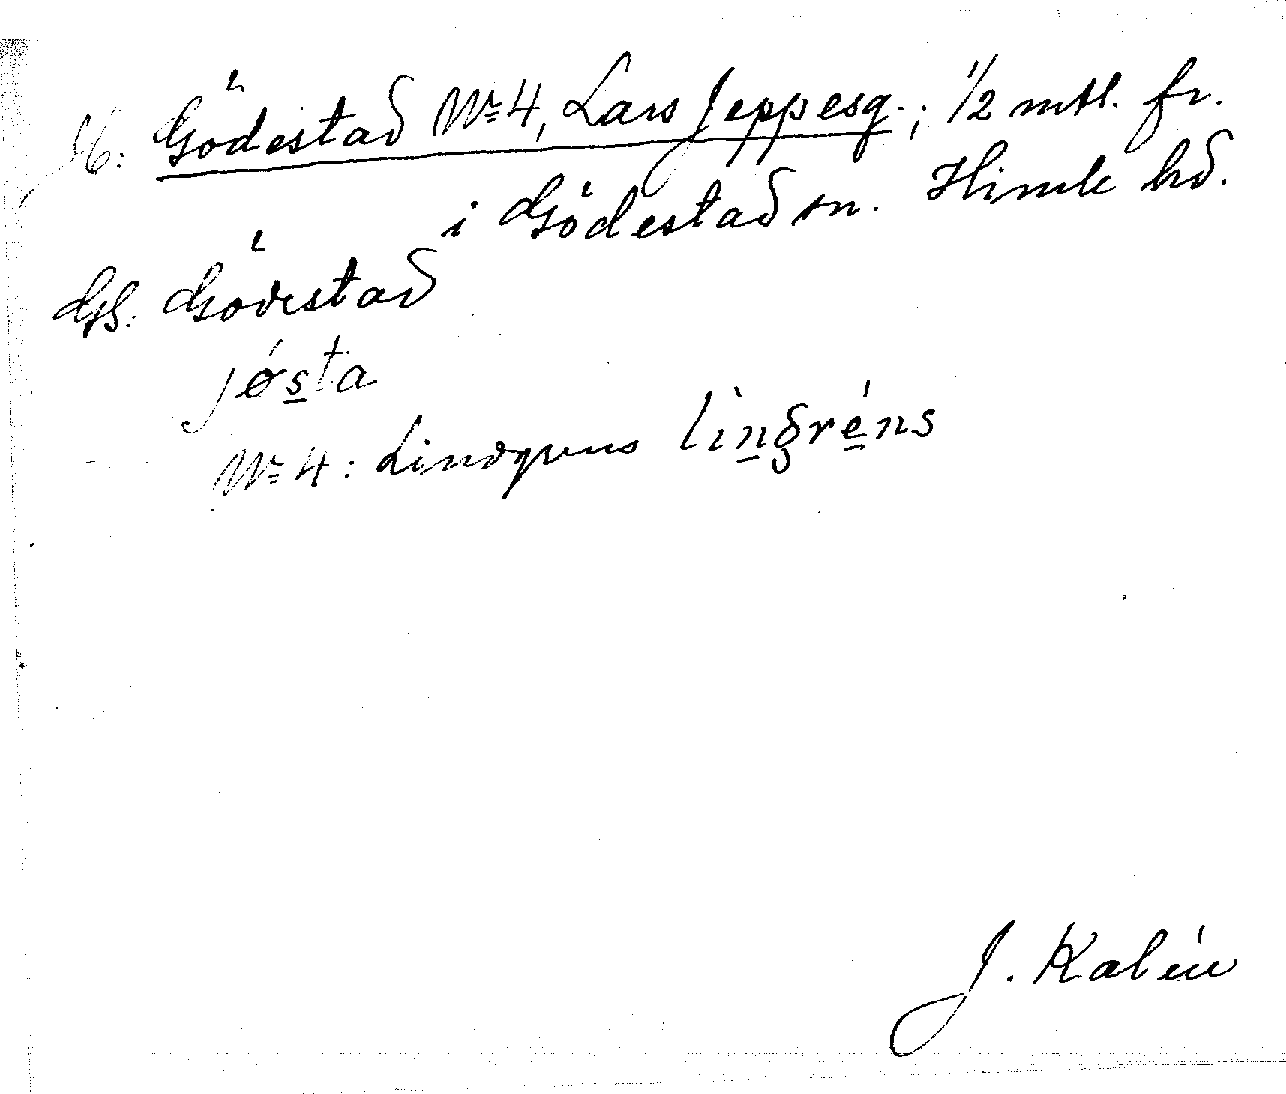 M: Gödestad No 4, Lars Jeppesg.; 1/2 mtl. fr.
i Gödestad sn. Himle hd.
GS. Gödestad
jǿsta
No 4: Lindgrens lìngréns
J. Kalén